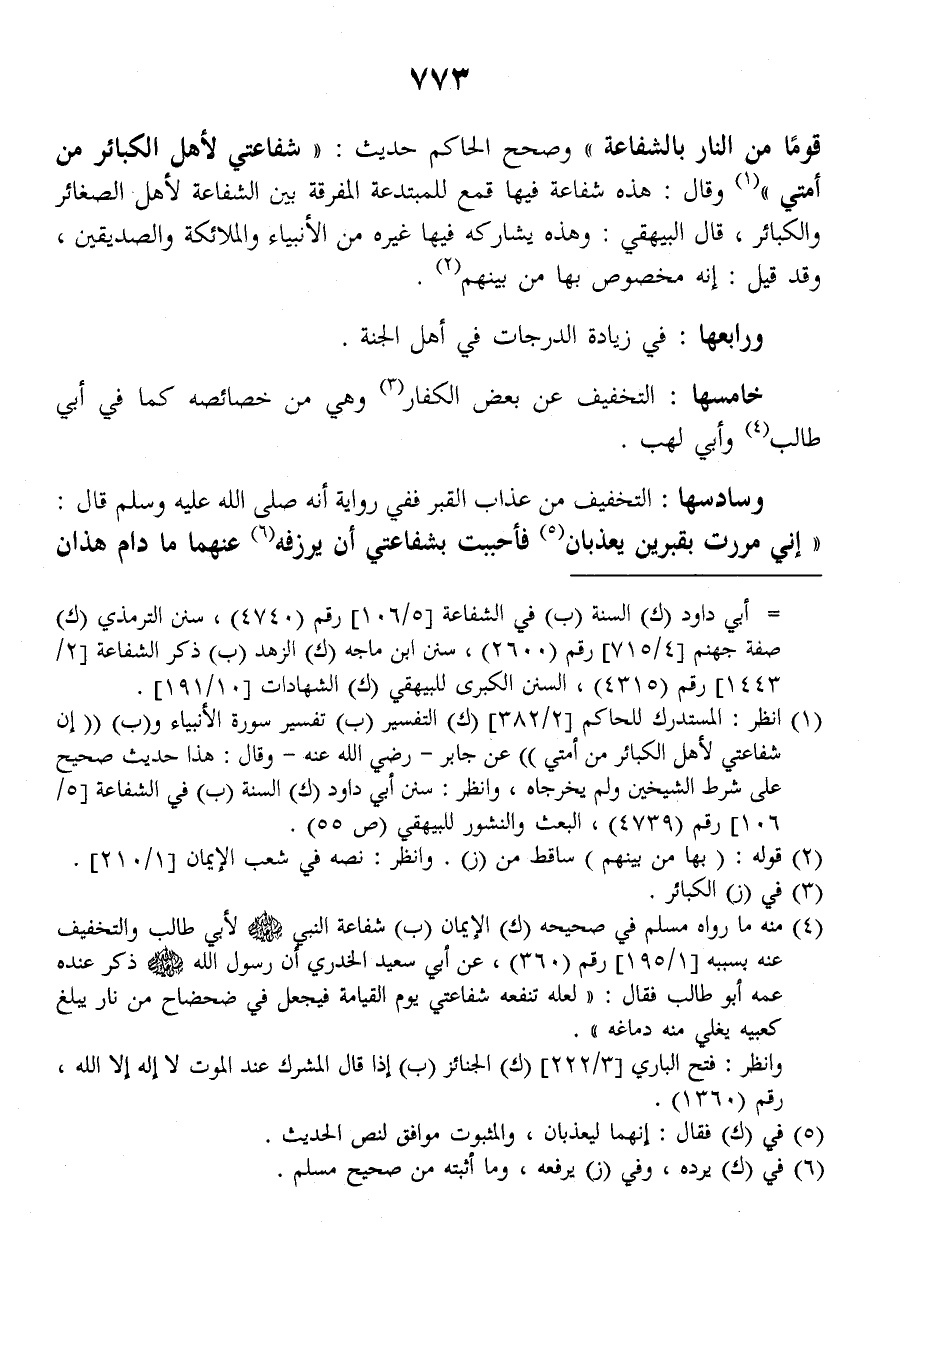 ٧٧٣
قومًا من النار بالشفاعة » وصحح الحاكم حديث : « شفاعتي لأهل الكبائر من
أمتي »(١) وقال : هذه شفاعة فيها قمع للمبتدعة المفرقة بين الشفاعة لأهل الصغائر
والكبائر ، قال البيهقي : وهذه يشاركه فيها غيره من الأنبياء والملائكة والصديقين ،
وقد قيل : إنه مخصوص بها من بينهم(٢) .
ورابعها : في زيادة الدرجات في أهل الجنة .
خامسها : التخفيف عن بعض الكفار(٣) وهي من خصائصه كما في أبي
طالب(٤) وأبي لهب .
وسادسها : التخفيف من عذاب القبر ففي رواية أنه صلى الله عليه وسلم قال :
« إني مررت بقبرين يعذبان(٥) فأحببت بشفاعتي أن يرزفه(٦) عنهما ما دام هذان
= أبي داود (ك) السنة (ب) في الشفاعة [١٠٦/٥] رقم (٤٧٤٠) ، سنن الترمذي (ك)
صفة جهنم [٧١٥/٤] رقم (٢٦٠٠) ، سنن ابن ماجه (ك) الزهد (ب) ذكر الشفاعة [٢/
١٤٤٣] رقم (٤٣١٥) ، السنن الكبرى للبيهقي (ك) الشهادات [١٩١/١٠] .
(١) انظر : المستدرك للحاكم [٣٨٢/٢] (ك) التفسير (ب) تفسير سورة الأنبياء و(ب) (( إن
شفاعتي لأهل الكبائر من أمتي )) عن جابر – رضي الله عنه – وقال : هذا حديث صحيح
على شرط الشيخين ولم يخرجاه ، وانظر : سنن أبي داود (ك) السنة (ب) في الشفاعة [٥/
١٠٦] رقم (٤٧٣٩) ، البعث والنشور للبيهقي (ص ٥٥) .
(٢) قوله : ( بها من بينهم ) ساقط من (ز) . وانظر : نصه في شعب الإيمان [٢١٠/١] .
(٣) في (ز) الكبائر .
(٤) منه ما رواه مسلم في صحيحه (ك) الإيمان (ب) شفاعة النبي ﷺ لأبي طالب والتخفيف
عنه بسببه [١٩٥/١] رقم (٣٦٠) ، عن أبي سعيد الخدري أن رسول الله ﷺ ذكر عنده
عمه أبو طالب فقال : « لعله تنفعه شفاعتي يوم القيامة فيجعل في ضحضاح من نار يبلغ
كعبيه يغلي منه دماغه » .
وانظر : فتح الباري [٢٢٢/٣] (ك) الجنائز (ب) إذا قال المشرك عند الموت لا إله إلا الله ،
رقم (١٣٦٠) .
(٥) في (ك) فقال : إنهما ليعذبان ، والمثبوت موافق لنص الحديث .
(٦) في (ك) يرده ، وفي (ز) يرفعه ، وما أثبته من صحيح مسلم .